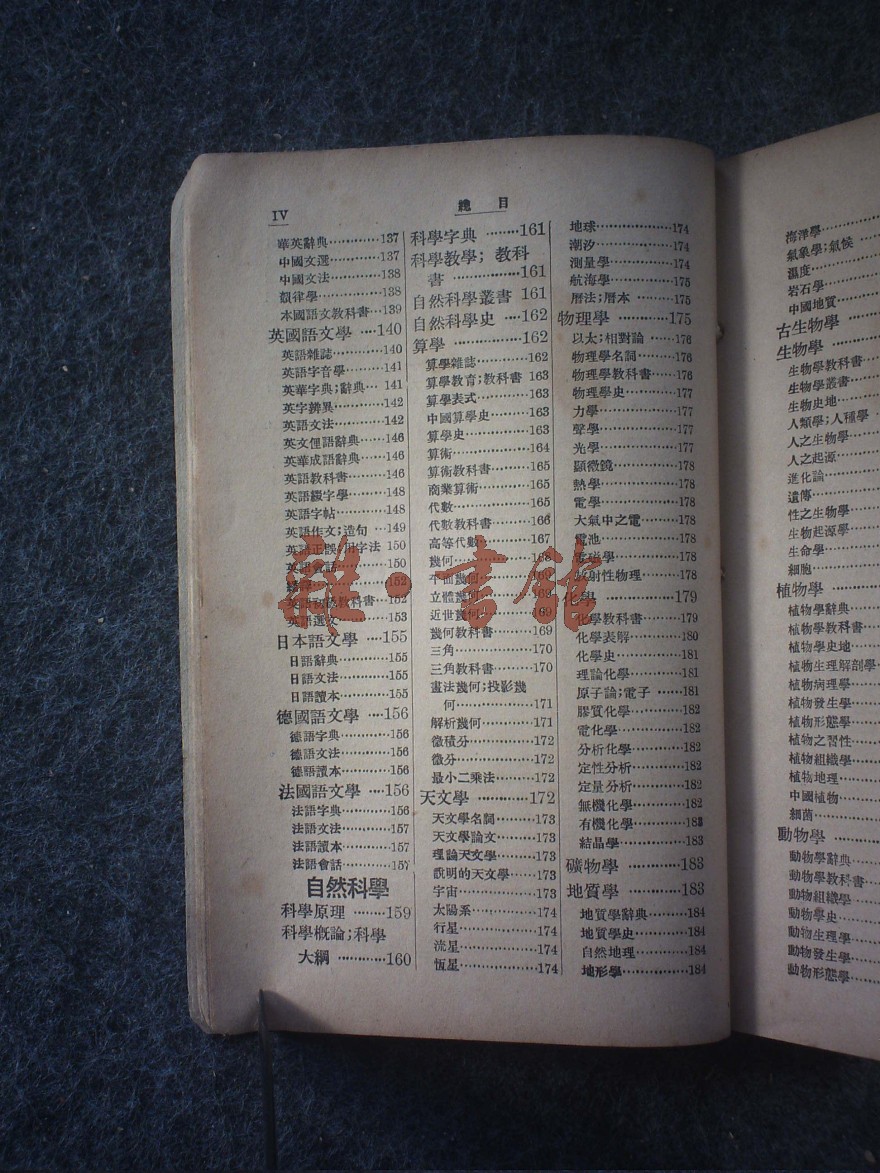 IV
總目
華英辭典············137
中國文選············137
中國文法············138
韻律學··············138
本國語文教科書···139
英國語文學 ····140
英語雜誌············140
英語字音學·········141
英華字典;辭典··· 141
英字辨異············142
英語文法············142
英文俚語辭典······146
英華成語辭典······146
英語教科書·········146
英語綴字學·········148
英語字帖············148
英語作文;造句 ···149
英語正誤;用字法 150
英語會話············150
152
英語初級教科書···152
英語選文············153
日本語文學 ····155
日語辭典············155
日語文法············155
日語讀本············155
德國語文學 ····156
德語字典············156
德語文法············156
德語讀本············156
法國語文學 ····156
法語字典············156
法語文法············157
法語讀本············157
法語會話············157
自然科學
科學原理 ········159
科學概論;科學
大綱 ············160
科學字典 ········161
科學教學; 教科
書 ··············161
自然科學叢書 161
自然科學史 ····162
算學 ··············162
算學雜誌············162
算學教育;教科書 163
算學表式············163
中國算學史·········163
算學史···············163
算術··················164
算術教科書·········165
商業算術············165
代數··················165
代數教科書·········166
高等代數············167
幾何··················168
平面幾何············169
立體幾何············169
近世幾何············169
幾何教科書·········169
三角··················170
三角教科書·········170
畫法幾何;投影幾
何··················171
解析幾何············171
微積分···············172
微分··················172
最小二乘法·········172
天文學 ············172
天文學名詞·········173
天文學論文·········173
理論天文學·········173
說明的天文學······173
宇宙··················173
太陽系···············174
行星··················174
流星··················174
恆星··················174
地球··················174
潮汐··················174
測量學···············174
航海學···············175
曆法;曆本 ·········175
物理學 ············175
以太;相對論 ······176
物理學名詞·········176
物理學教科書······176
物理學史············177
力學··················177
聲學··················177
光學··················177
顯微鏡···············178
熱學··················178
電學··················178
大氣中之電·········178
電池··················178
電磁學···············178
放射性物理·········178
化學 ··············179
化學教科書·········179
化學表解············180
化學史···············181
理論化學············181
原子論;電子 ······181
膠質化學············182
電化學···············182
分析化學············182
定性分析············182
定量分析············182
無機化學············182
有機化學············183
結晶學···············183
礦物學 ············183
地質學 ············183
地質學辭典·········184
地質學史············184
自然地理············184
地形學···············184
海洋學
氣象學;氣候
濕度
岩石學
中國地質
古生物學
生物學
生物學教科書
生物學叢書
生物史地
人類學;人種學
人之生物學
人之起源
進化論
遺傳
性之生物學
生物起源學
生命學
細胞
植物學
植物學辭典
植物學教科書
植物學史地
植物生理解剖學
植物病理學
植物發生學
植物形態學
植物之習性
植物組織學
植物地理
中國植物
細菌
動物學
動物學辭典
動物學教科書
動物組織學
動物學史
動物生理學
動物發生學
動物形態學
雜·書館